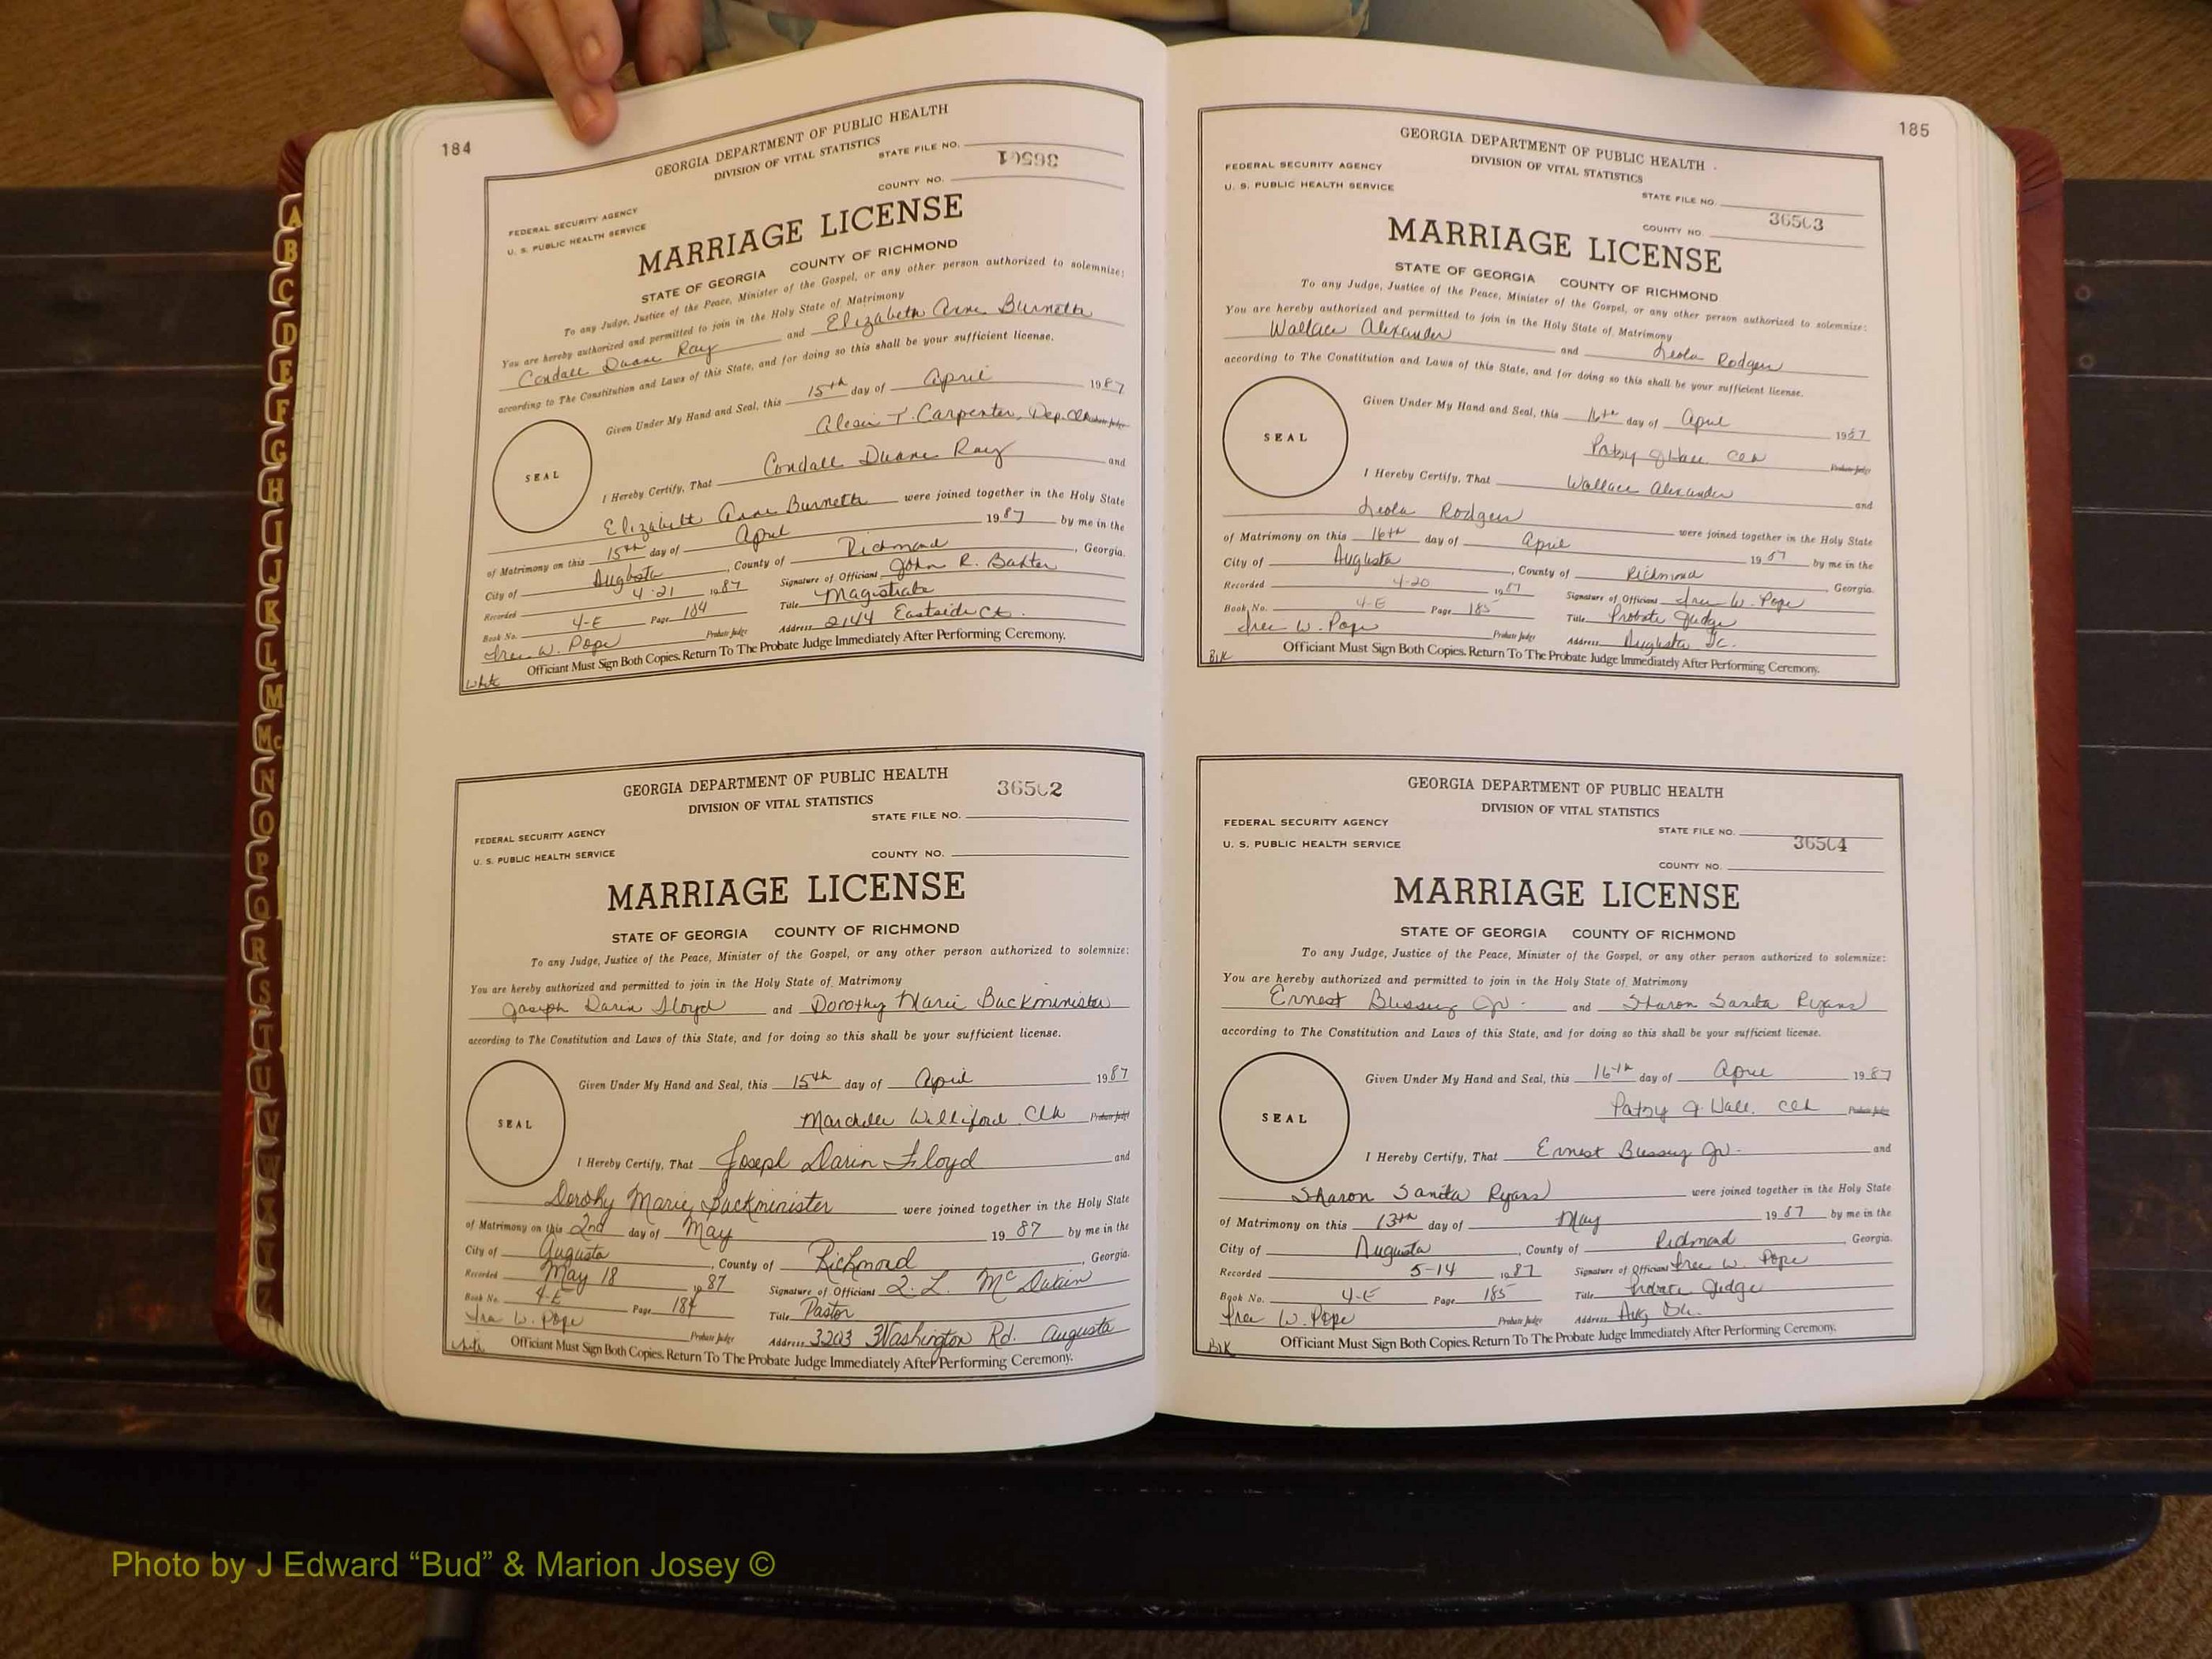 184
GEORGIA DEPARTMENT OF PUBLIC HEALTH
DIVISION OF VITAL STATISTICS
STATE FILE NO.
36501
COUNTY NO.
FEDERAL SECURITY AGENCY
U. S. PUBLIC HEALTH SERVICE
MARRIAGE LICENSE
STATE OF GEORGIA COUNTY OF RICHMOND
To any Judge, Justice of the Peace, Minister of the Gospel, or any other person authorized to solemnize:
You are hereby authorized and permitted to join in the Holy State of Matrimony
Condall Duane Ray and Elizabeth Anne Burnette
according to The Constitution and Laws of this State, and for doing so this shall be your sufficient license.
Given Under My Hand and Seal, this 15th day of April 1987
T. Carpenter, Dep. Clk Probate Judge
SEAL
I Hereby Certify, That Condall Duane Ray and
Elizabeth Anne Burnette were joined together in the Holy State
of Matrimony on this 15th day of April 1987 by me in the
City of Augusta, County of Richmond, Georgia.
Recorded 4-21 1987 Signature of Officiant John R. Baxter
Book No. 4-E Page 184 Title Magistrate
W. Pope Probate Judge Address 2144 Eastside Ct.
White Officiant Must Sign Both Copies. Return To The Probate Judge Immediately After Performing Ceremony.
GEORGIA DEPARTMENT OF PUBLIC HEALTH
36502
DIVISION OF VITAL STATISTICS
STATE FILE NO.
FEDERAL SECURITY AGENCY
U. S. PUBLIC HEALTH SERVICE
COUNTY NO.
MARRIAGE LICENSE
STATE OF GEORGIA COUNTY OF RICHMOND
To any Judge, Justice of the Peace, Minister of the Gospel, or any other person authorized to solemnize:
You are hereby authorized and permitted to join in the Holy State of Matrimony
Joseph Darin Floyd and Dorothy Marie Buckminister
according to The Constitution and Laws of this State, and for doing so this shall be your sufficient license.
Given Under My Hand and Seal, this 15th day of April 1987
Williford Clk Probate Judge
SEAL
I Hereby Certify, That Joseph Darin Floyd and
Dorothy Marie Buckminister were joined together in the Holy State
of Matrimony on this 2nd day of May 1987 by me in the
City of Augusta, County of Richmond, Georgia.
Recorded May 18 1987 Signature of Officiant
Book No. 4-E Page 184 Title Pastor
Ira W. Pope Probate Judge Address 3203 Washington Rd. Augusta
White Officiant Must Sign Both Copies. Return To The Probate Judge Immediately After Performing Ceremony.
185
GEORGIA DEPARTMENT OF PUBLIC HEALTH
DIVISION OF VITAL STATISTICS
FEDERAL SECURITY AGENCY
U. S. PUBLIC HEALTH SERVICE
STATE FILE NO.
36503
COUNTY NO.
MARRIAGE LICENSE
STATE OF GEORGIA COUNTY OF RICHMOND
To any Judge, Justice of the Peace, Minister of the Gospel, or any other person authorized to solemnize:
You are hereby authorized and permitted to join in the Holy State of Matrimony
Wallace Alexander and Leola Rodgers
according to The Constitution and Laws of this State, and for doing so this shall be your sufficient license.
Given Under My Hand and Seal, this 16th day of April 1987
Patsy J Wall Clk Probate Judge
SEAL
I Hereby Certify, That Wallace Alexander and
Leola Rodgers were joined together in the Holy State
of Matrimony on this 16th day of April 1987 by me in the
City of Augusta, County of Richmond, Georgia.
Recorded 4-20 1987 Signature of Officiant W. Pope
Book No. 4-E Page 185 Title Probate Judge
W. Pope Probate Judge Address Augusta Ga.
Blk Officiant Must Sign Both Copies. Return To The Probate Judge Immediately After Performing Ceremony.
GEORGIA DEPARTMENT OF PUBLIC HEALTH
DIVISION OF VITAL STATISTICS
FEDERAL SECURITY AGENCY
STATE FILE NO.
U. S. PUBLIC HEALTH SERVICE
36504
COUNTY NO.
MARRIAGE LICENSE
STATE OF GEORGIA COUNTY OF RICHMOND
To any Judge, Justice of the Peace, Minister of the Gospel, or any other person authorized to solemnize:
You are hereby authorized and permitted to join in the Holy State of Matrimony
Ernest Bussey Jr. and Sharon Sanita Ryans
according to The Constitution and Laws of this State, and for doing so this shall be your sufficient license.
Given Under My Hand and Seal, this 16th day of April 1987
Patsy J. Wall. Clk Probate Judge
SEAL
I Hereby Certify, That Ernest Bussey Jr. and
Sharon Sanita Ryans were joined together in the Holy State
of Matrimony on this 13th day of May 1987 by me in the
City of Augusta, County of Richmond, Georgia.
Recorded 5-14 1987 Signature of Officiant W. Pope
Book No. 4-E Page 185 Title Probate Judge
W. Pope Probate Judge Address Aug Ga.
Blk Officiant Must Sign Both Copies. Return To The Probate Judge Immediately After Performing Ceremony.
A
B
C
D
E
F
G
H
I
J
K
L
M
Mc
N
O
P
Q
R
S
T
U
V
W
X
Y
Z
Photo by J Edward “Bud” & Marion Josey ©